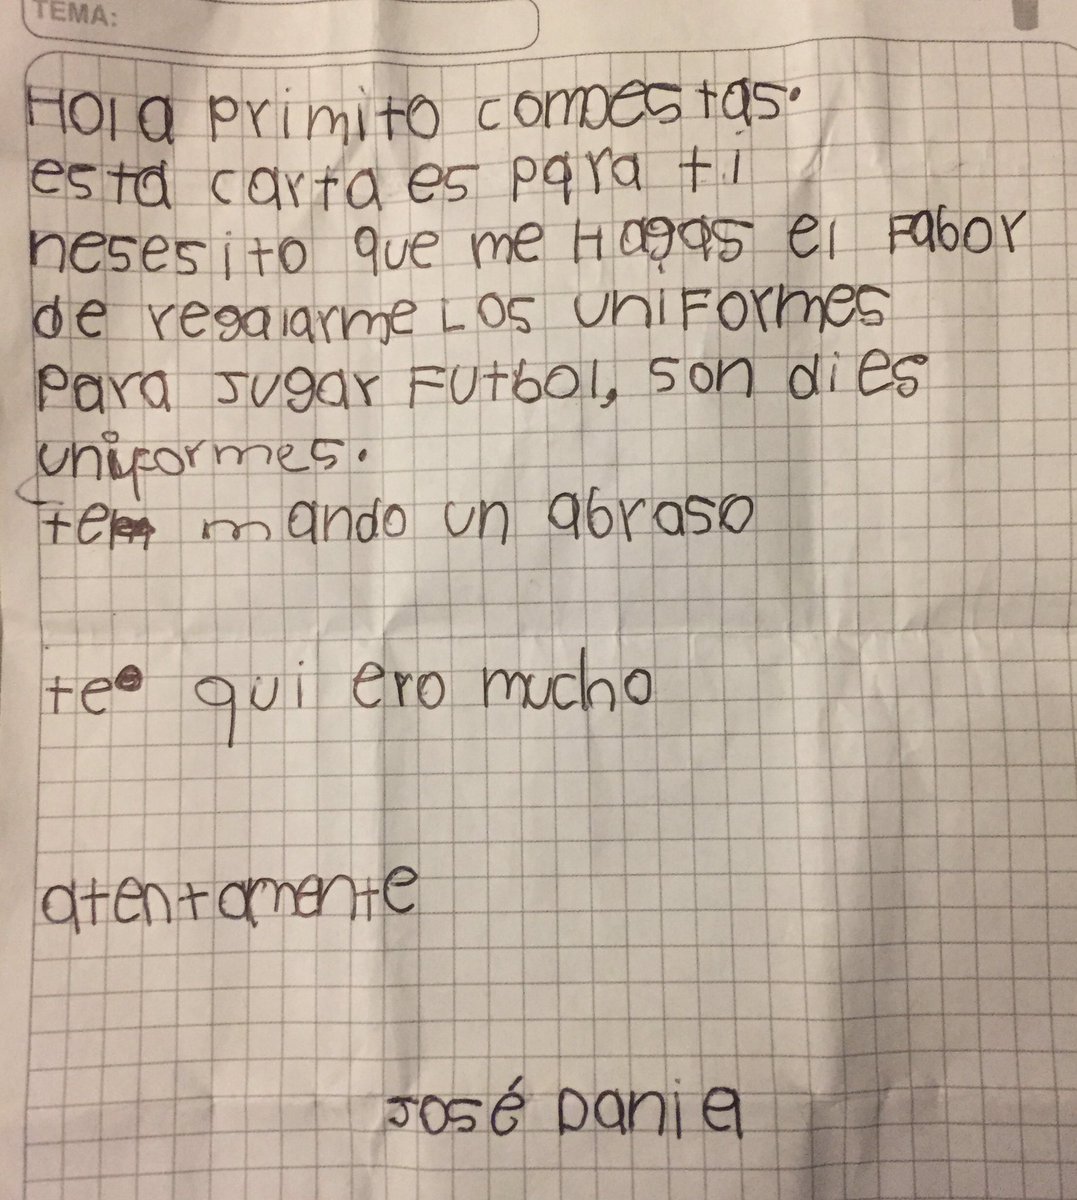 TEMA:
Hola primito comoestas.
esta carta es para ti
nesesito que me Hagas el Fabor
de regalarme Los uniFormes
para Jugar Futbol, son dies
uniformes.
te mando un abraso
te quiero mucho
atentamente
José Daniel